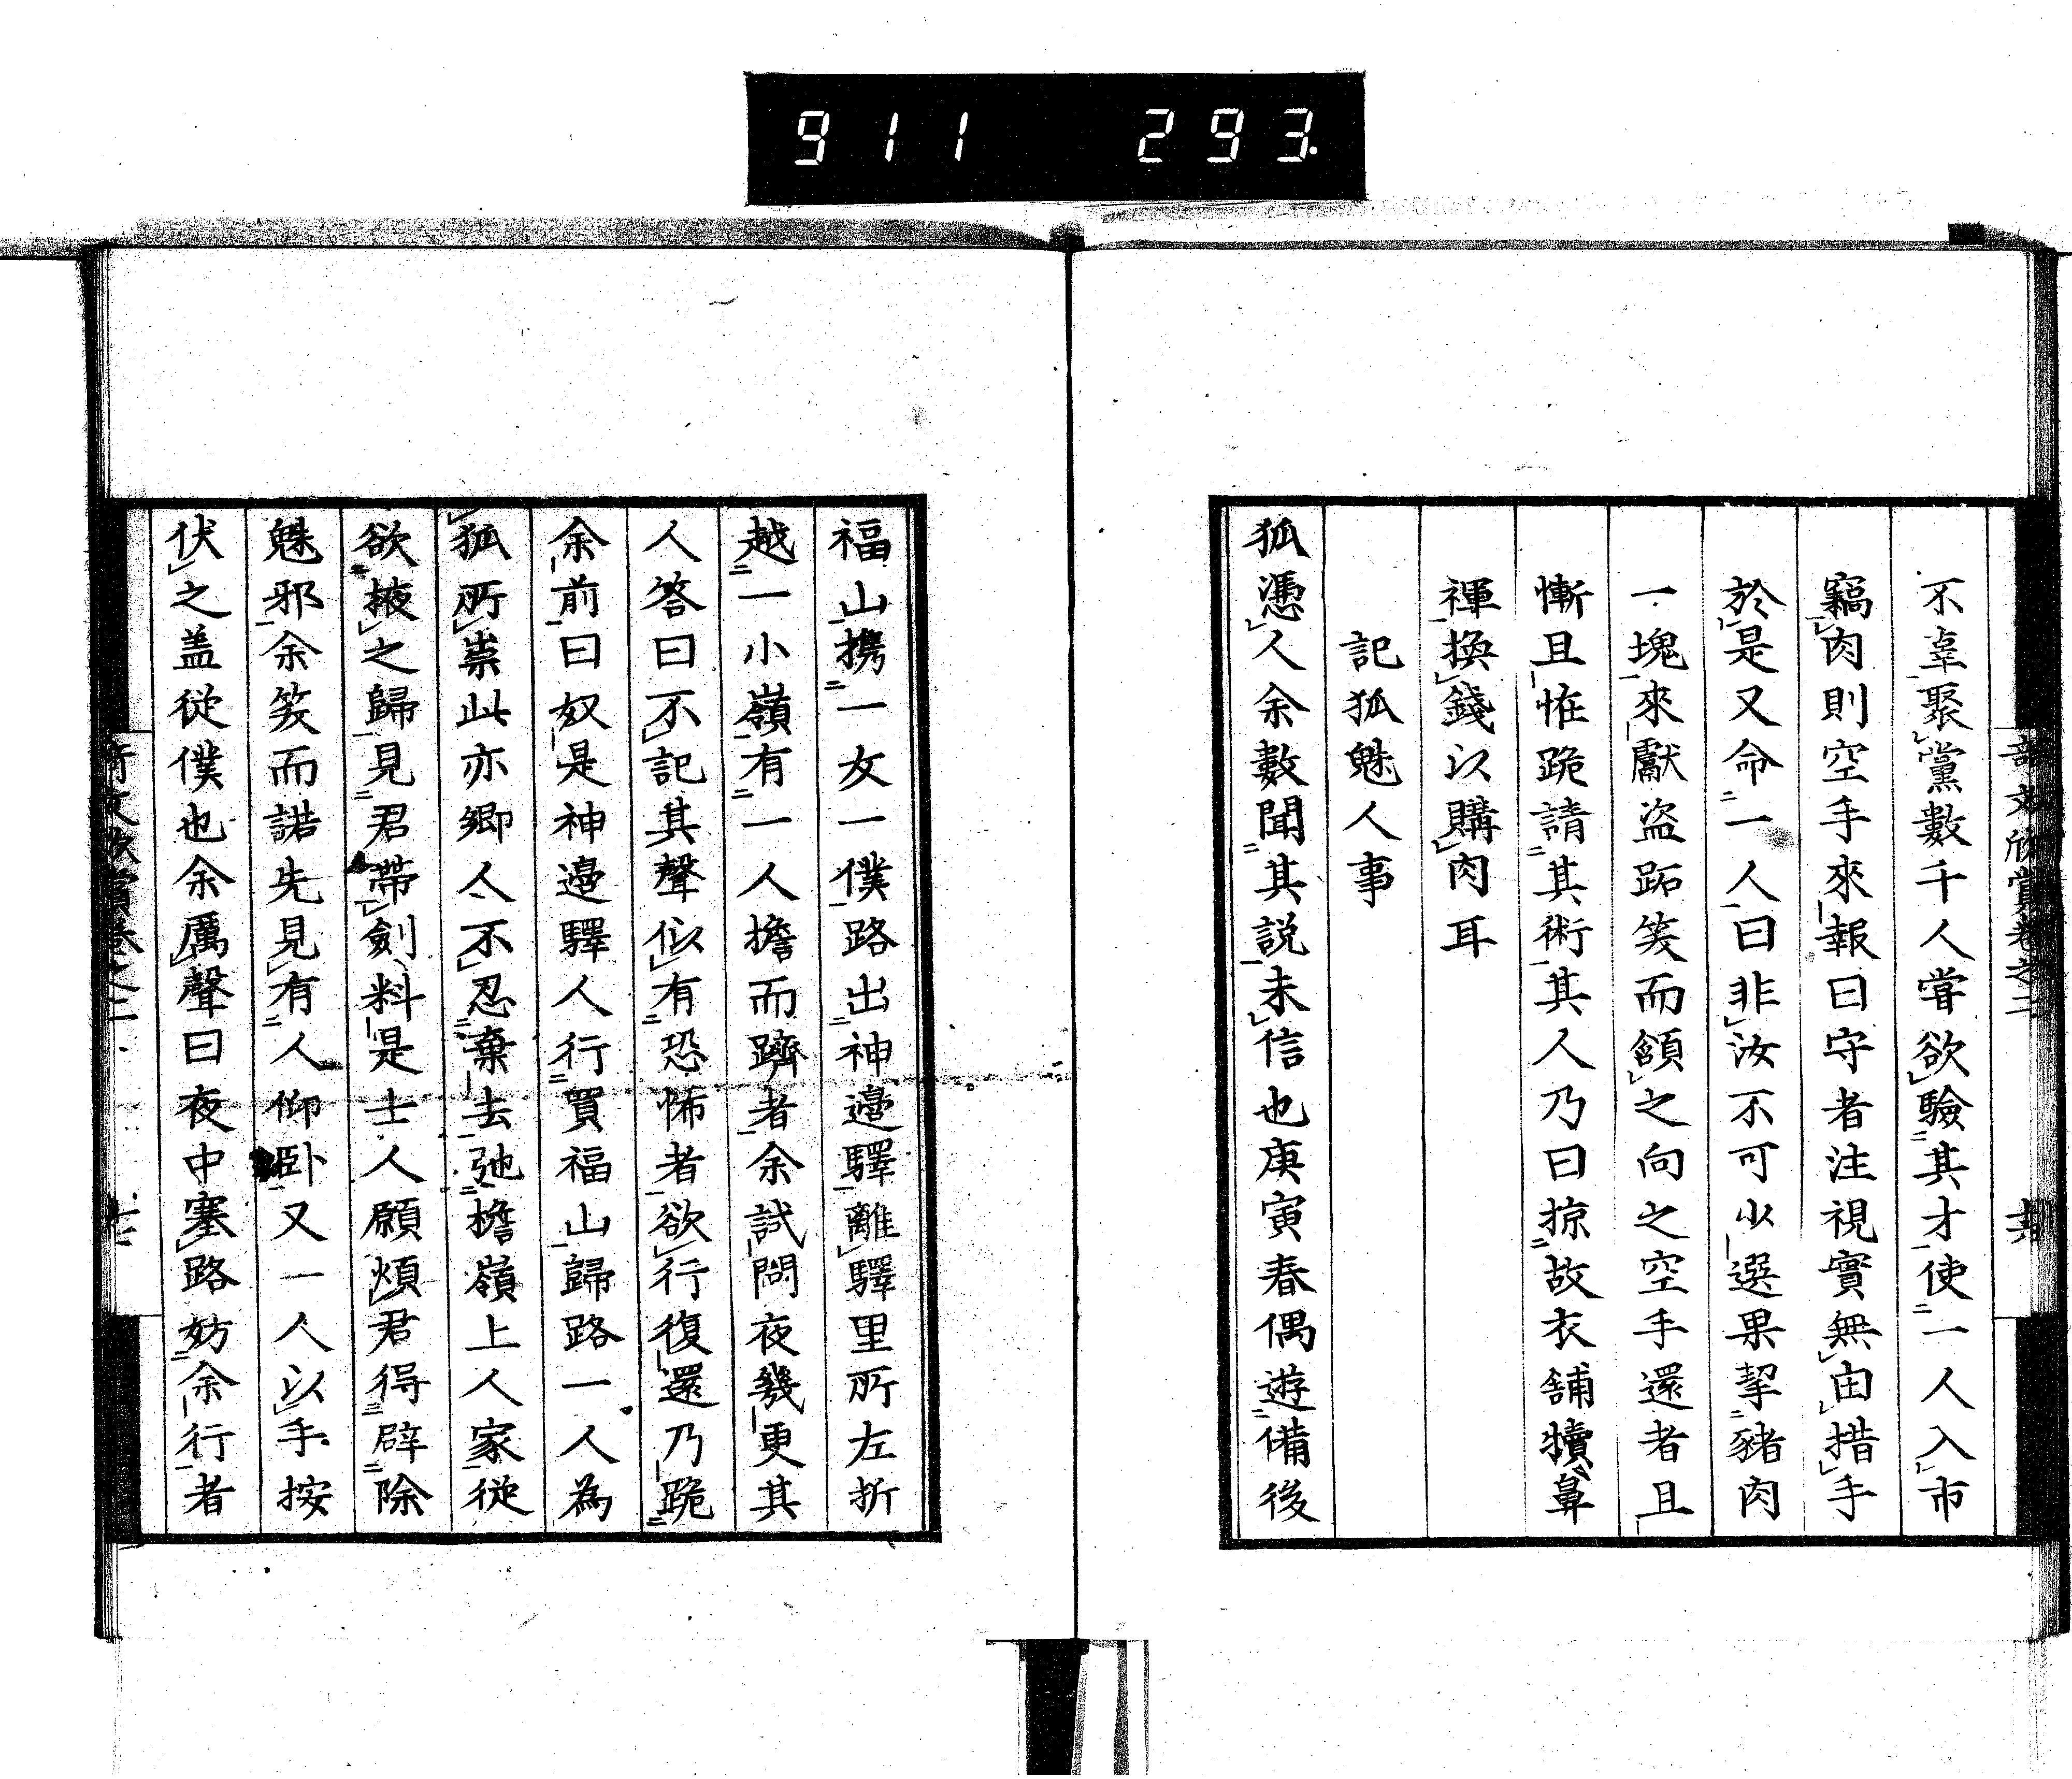 911 293.
奇文欣賞卷之二 十六
不辜聚黨數千人嘗欲驗其才使一人入市
竊肉則空手來報曰守者注視實無由措手
於是又命一人曰非汝不可以選果挈豬肉
一塊來獻盗跖笑而頷之向之空手還者且
慚且恠跪請其術其人乃曰掠故衣舗犢鼻
褌換錢以購肉耳
記狐魅人事
狐憑人余數聞其説未信也庚寅春偶遊備後
福山携一女一僕路出神邉驛離驛里所左折
越一小嶺有一人擔而躋者余試問夜幾更其
人答曰不記其聲似有恐怖者欲行復還乃跪
余前曰奴是神邉驛人行買福山歸路一人為
狐所祟此亦郷人不忍棄去弛擔嶺上人家從
欲掖之歸見君帶劍料是士人願煩君得辟除
魅邪余笑而諾先見有人仰卧又一人以手按
伏之盖従僕也余厲聲曰夜中塞路妨余行者
奇文欣賞卷之二 十七